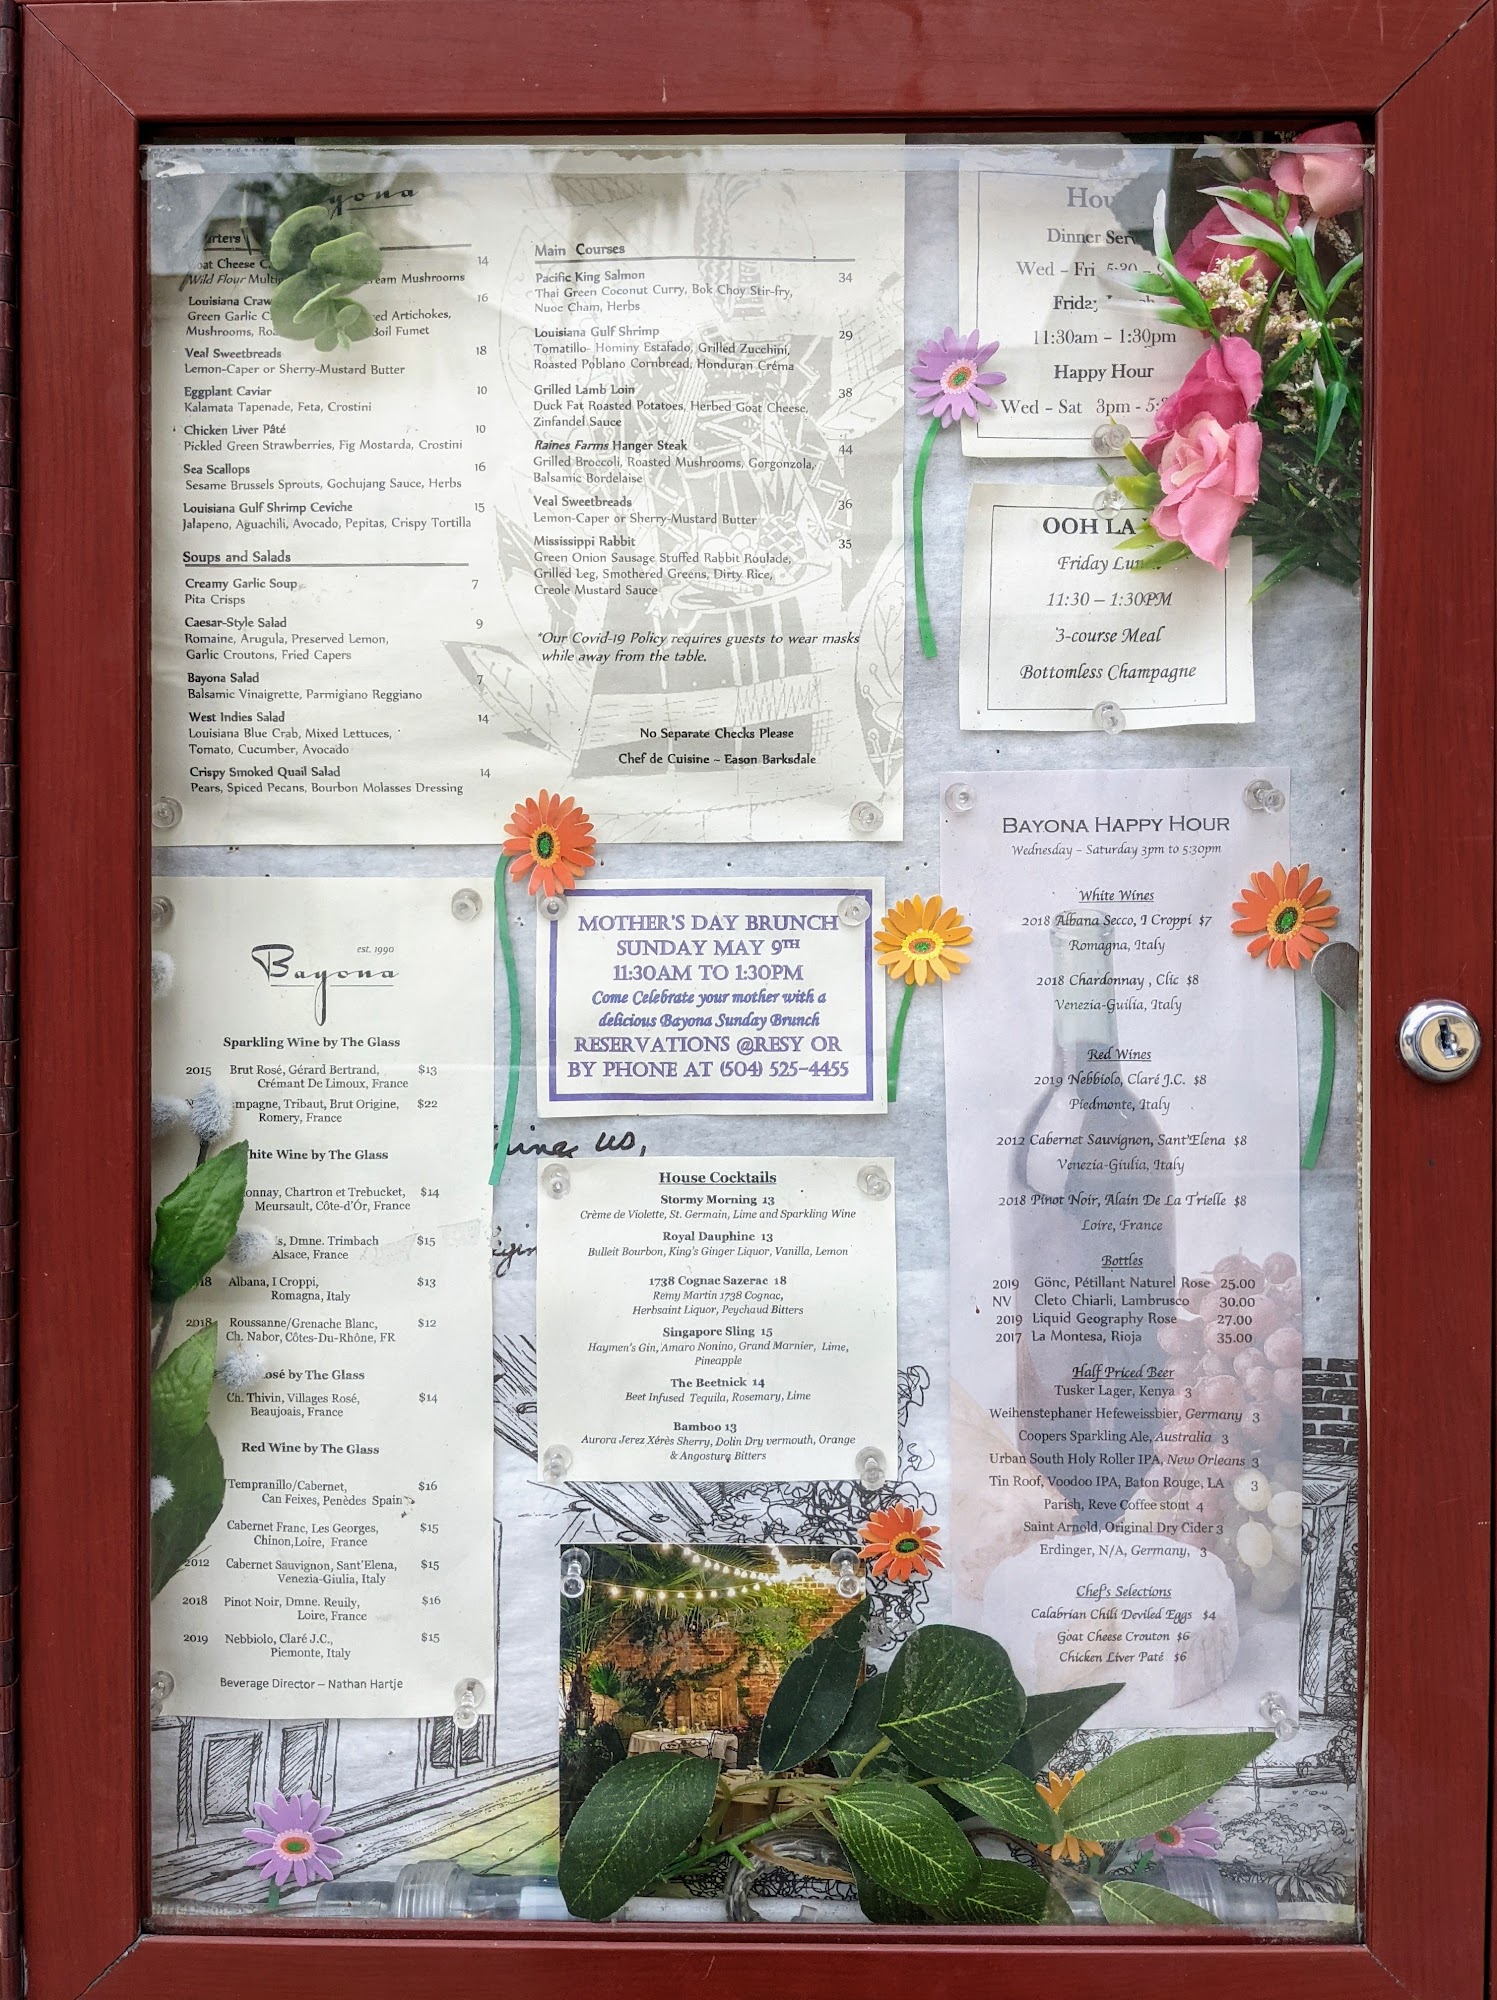 yona
14
Wild Flour
Mushrooms
Louisiana
16
Green Garlic
Artichokes,
Mushrooms,
Boil Fumet
Veal Sweetbreads 18
Lemon-Caper or Sherry-Mustard Butter
Eggplant Caviar 10
Kalamata Tapenade, Feta, Crostini
Chicken Liver Pâté 10
Pickled Green Strawberries, Fig Mostarda, Crostini
Sea Scallops 16
Sesame Brussels Sprouts, Gochujang Sauce, Herbs
Louisiana Gulf Shrimp Ceviche 15
Jalapeno, Aguachili, Avocado, Pepitas, Crispy Tortilla
Soups and Salads
Creamy Garlic Soup 7
Pita Crisps
Caesar-Style Salad 9
Romaine, Arugula, Preserved Lemon,
Garlic Croutons, Fried Capers
Bayona Salad 7
Balsamic Vinaigrette, Parmigiano Reggiano
West Indies Salad 14
Louisiana Blue Crab, Mixed Lettuces,
Tomato, Cucumber, Avocado
Crispy Smoked Quail Salad 14
Pears, Spiced Pecans, Bourbon Molasses Dressing
Main Courses
Pacific King Salmon 34
Thai Green Coconut Curry, Bok Choy Stir-fry,
Nuoc Cham, Herbs
Louisiana Gulf Shrimp 29
Tomatillo- Hominy Estafado, Grilled Zucchini,
Roasted Poblano Cornbread, Honduran Créma
Grilled Lamb Loin 38
Duck Fat Roasted Potatoes, Herbed Goat Cheese,
Zinfandel Sauce
Raines Farms Hanger Steak 44
Grilled Broccoli, Roasted Mushrooms, Gorgonzola,
Balsamic Bordelaise
Veal Sweetbreads 36
Lemon-Caper or Sherry-Mustard Butter
Mississippi Rabbit 35
Green Onion Sausage Stuffed Rabbit Roulade,
Grilled Leg, Smothered Greens, Dirty Rice,
Creole Mustard Sauce
*Our Covid-19 Policy requires guests to wear masks
while away from the table.
No Separate Checks Please
Chef de Cuisine ~ Eason Barksdale
Dinner
Wed – Fri
11:30am – 1:30pm
Happy Hour
Wed – Sat 3pm -
OOH LA
Friday
11:30 – 1:30PM
3-course Meal
Bottomless Champagne
est. 1990
Bayona
Sparkling Wine by The Glass
2015 Brut Rosé, Gérard Bertrand, $13
Crémant De Limoux, France
Tribaut, Brut Origine, $22
Romery, France
Wine by The Glass
Chartron et Trebucket, $14
Meursault, Côte-d'Ór, France
Dmne. Trimbach $15
Alsace, France
Albana, I Croppi, $13
Romagna, Italy
2018 Roussanne/Grenache Blanc, $12
Ch. Nabor, Côtes-Du-Rhône, FR
by The Glass
Ch. Thivin, Villages Rosé, $14
Beaujoais, France
Red Wine by The Glass
Tempranillo/Cabernet, $16
Can Feixes, Penèdes Spain
Cabernet Franc, Les Georges, $15
Chinon,Loire, France
2012 Cabernet Sauvignon, Sant'Elena, $15
Venezia-Giulia, Italy
2018 Pinot Noir, Dmne. Reuily, $16
Loire, France
2019 Nebbiolo, Claré J.C., $15
Piemonte, Italy
Beverage Director – Nathan Hartje
MOTHER'S DAY BRUNCH
SUNDAY MAY 9TH
11:30AM TO 1:30PM
Come Celebrate your mother with a
delicious Bayona Sunday Brunch
RESERVATIONS @RESY OR
BY PHONE AT (504) 525-4455
us,
House Cocktails
Stormy Morning 13
Crème de Violette, St. Germain, Lime and Sparkling Wine
Royal Dauphine 13
Bulleit Bourbon, King's Ginger Liquor, Vanilla, Lemon
1738 Cognac Sazerac 18
Remy Martin 1738 Cognac,
Herbsaint Liquor, Peychaud Bitters
Singapore Sling 15
Haymen's Gin, Amaro Nonino, Grand Marnier, Lime,
Pineapple
The Beetnick 14
Beet Infused Tequila, Rosemary, Lime
Bamboo 13
Aurora Jerez Xérès Sherry, Dolin Dry vermouth, Orange
& Angostura Bitters
BAYONA HAPPY HOUR
Wednesday – Saturday 3pm to 5:30pm
White Wines
2018 Albana Secco, I Croppi $7
Romagna, Italy
2018 Chardonnay , Clic $8
Venezia-Guilia, Italy
Red Wines
2019 Nebbiolo, Claré J.C. $8
Piedmonte, Italy
2012 Cabernet Sauvignon, Sant'Elena $8
Venezia-Giulia, Italy
2018 Pinot Noir, Alain De La Trielle $8
Loire, France
Bottles
2019 Gönc, Pétillant Naturel Rose 25.00
NV Cleto Chiarli, Lambrusco 30.00
2019 Liquid Geography Rose 27.00
2017 La Montesa, Rioja 35.00
Half Priced Beer
Tusker Lager, Kenya 3
Weihenstephaner Hefeweissbier, Germany 3
Coopers Sparkling Ale, Australia 3
Urban South Holy Roller IPA, New Orleans 3
Tin Roof, Voodoo IPA, Baton Rouge, LA 3
Parish, Reve Coffee stout 4
Saint Arnold, Original Dry Cider 3
Erdinger, N/A, Germany, 3
Chef's Selections
Calabrian Chili Deviled Eggs $4
Goat Cheese Crouton $6
Chicken Liver Paté $6